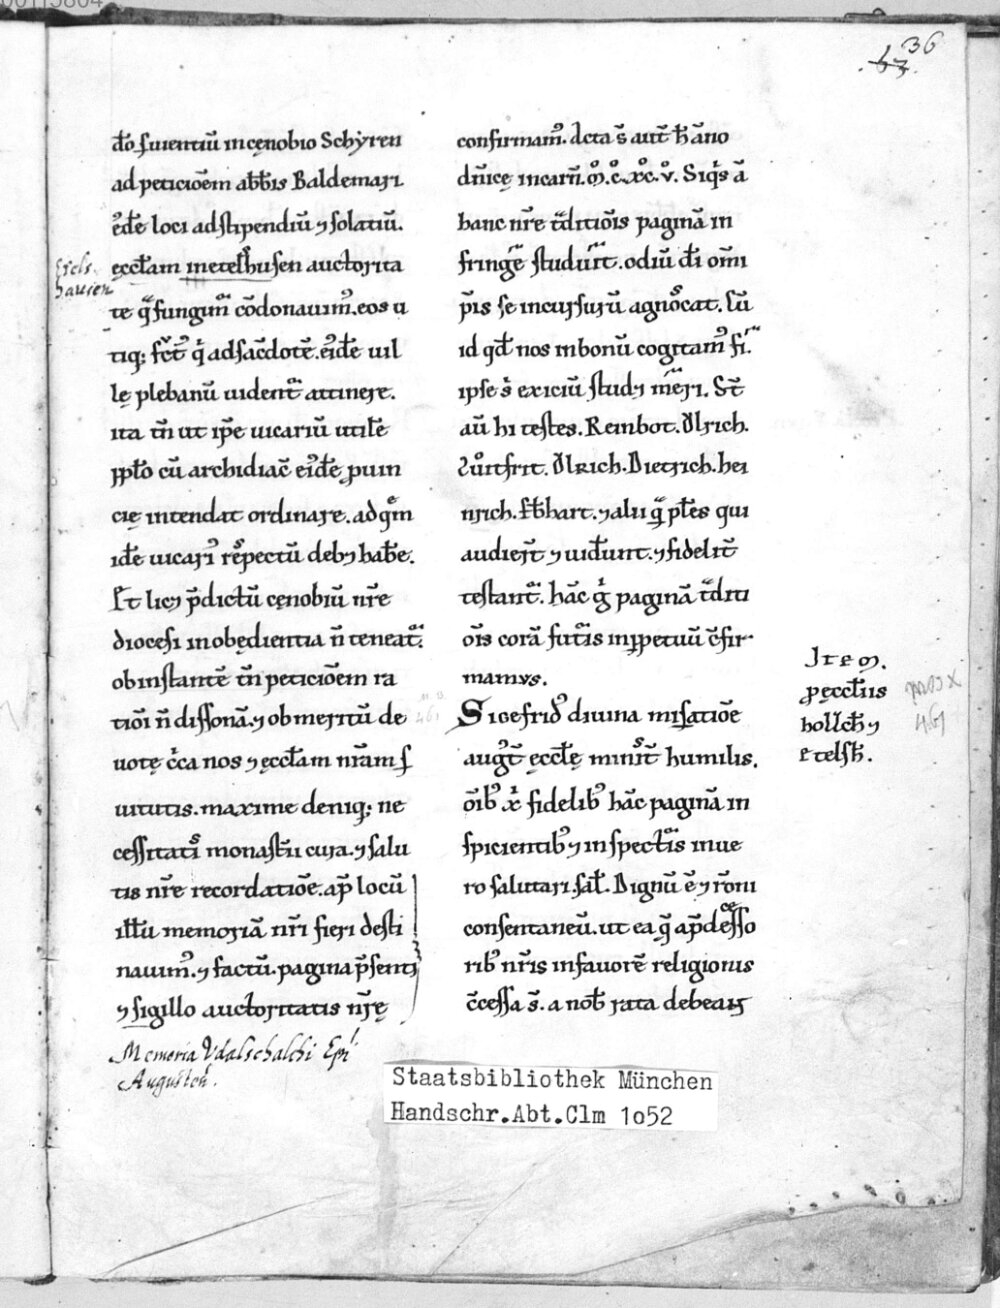 36
63.
d̄o ſuientiū in cęnobio Schẏren
ad peticiōem abb̄is Baldemari
eͥd̄e loci ad ſtipendiū ⁊ ſolatiū.
ęccl̄am inetelh̄uſen auctorita
te q̄ fungim̄ cōdonauim᾽. eos u
tiq; ſc̄t q̇ ad ſac̄dotē. eͥd̄e uil
lę plebanū uident̄ attinere.
ita tn̄ ut ip̄e uicariū utilē
ꝓpt̄o cū archidiac̄ eͥd̄e ꝓuin
cię intendat ordinare. ad qͤm
id̄e uicari᾽ reſpectū deb⁊ hab̄e.
Et lic⁊ p̄dictū cęnobiū nr̄e
dioceſi in obędientia n̄ teneat̄.
ob inſtantē tn̄ peticiōem ra
tiōi n̄ diſſonā. ⁊ ob meritū de
uotę c̄ca nos ⁊ ęccl̄am nr̄am ſ
uitutis. maxime deniq; ne
ceſſitati monaſt̄ii cura. ⁊ ſalu
tis nr̄e recordatiōe. ap̄ locū
ill̄u memoriā nr̄i fieri deſti
nauim᾽. ⁊ factū. pagina p̄ſenti
⁊ ſigillo auctoritatis nr̄ę
Memoria Vdalſchalchi Ep̄i
Auguſten̄.
confirmam᾽. dc̄ta s̄ aut̄ h̄ āno
dn̄icę incarn̄. m̊. c̊. xc̊. v̊. Siq̇s ā
hanc nr̄e t̄ditiōis paginā in
fringe᷑ ſtudu᷑it. odiū d̄i om̄i
p̄is ſe incurſurū agnoſcat. Cū
id qd̄ nos in bonū cogitam᾽ fi᷑i.
ipſe s᷑ exiciū ſtud⁊ m̄eri. St̄
au̅ hi teſtes. Reinbot. Ǒlrich.
Lůitfrit. Ǒlrich. Dietrich. hei
nrich. Eb̄hart. ⁊ alii q̄ pl̄es qui
audier̄t ⁊ uid̄unt. ⁊ fidelit̄
teſtant̄. hāc ġ paginā t̄diti
ōis corā fut᷑is inꝑpetuū c̄fir
mamvs.
Sigefrid᾽ diuina miſatiōe
auguſt̄ ęccl̄ę miniſt̄ humilis.
ōib᾽ x̄ fidelib᾽ hāc paginā in
ſpicientib᾽ ⁊ inſpect᷑is in ue
ro ſalutari. ſal̄. Dignū ē ⁊ rōni
conſentaneū. ut ea q̄ ap̄deceſſo
rib᾽ nr̄is in fauorē religionis
c̄ceſſa s̄. a nob̄ rata debeant
Item.
ꝓęccl̄iis
hollēh ⁊
etelſh̄.
461
Staatsbibliothek München
Handschr.Abt.Clm 1o52